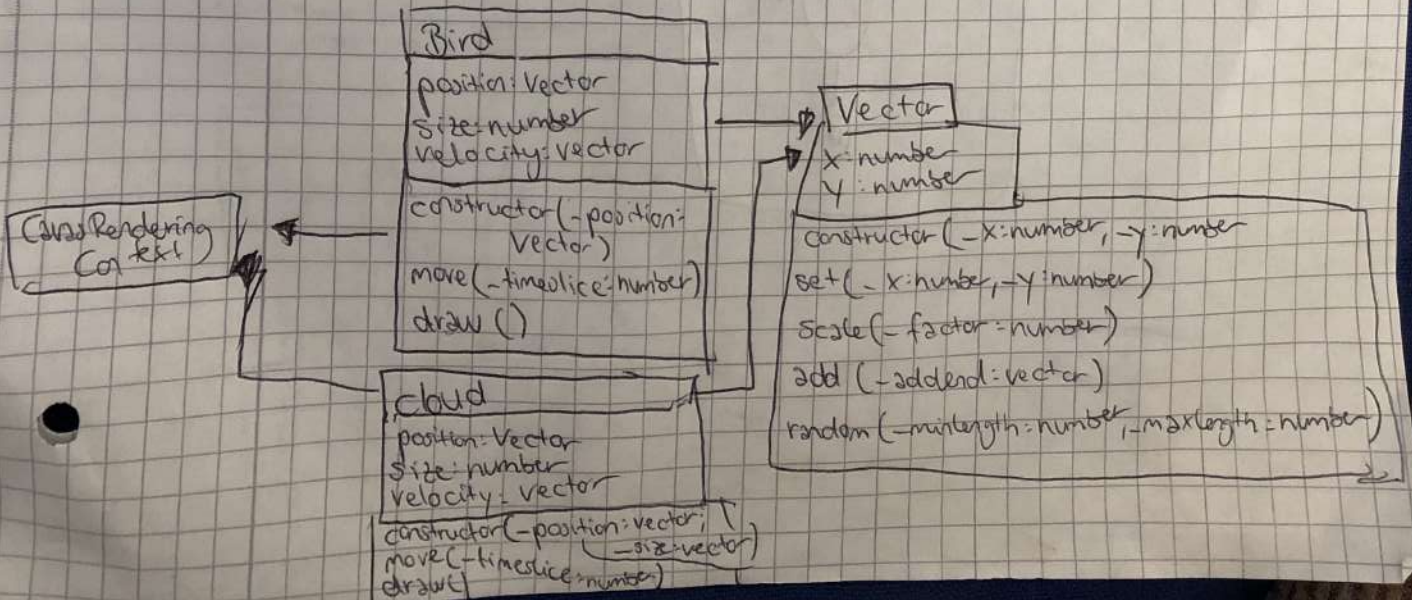 Bird
position: Vector
size: number
velocity: Vector
constructor(-position:
Vector)
move(-timeslice: number)
draw()
Vector
x: number
y: number
constructor(-x: number, -y: number
set(-x: number, -y: number)
scale(-factor: number)
add(-addend: vector)
random(-minlength: number, -maxlength: number)
CanvasRendering
Context)
cloud
position: Vector
size: number
velocity: Vector
constructor(-position: vector,
-size: vector)
move(-timeslice: number)
draw()